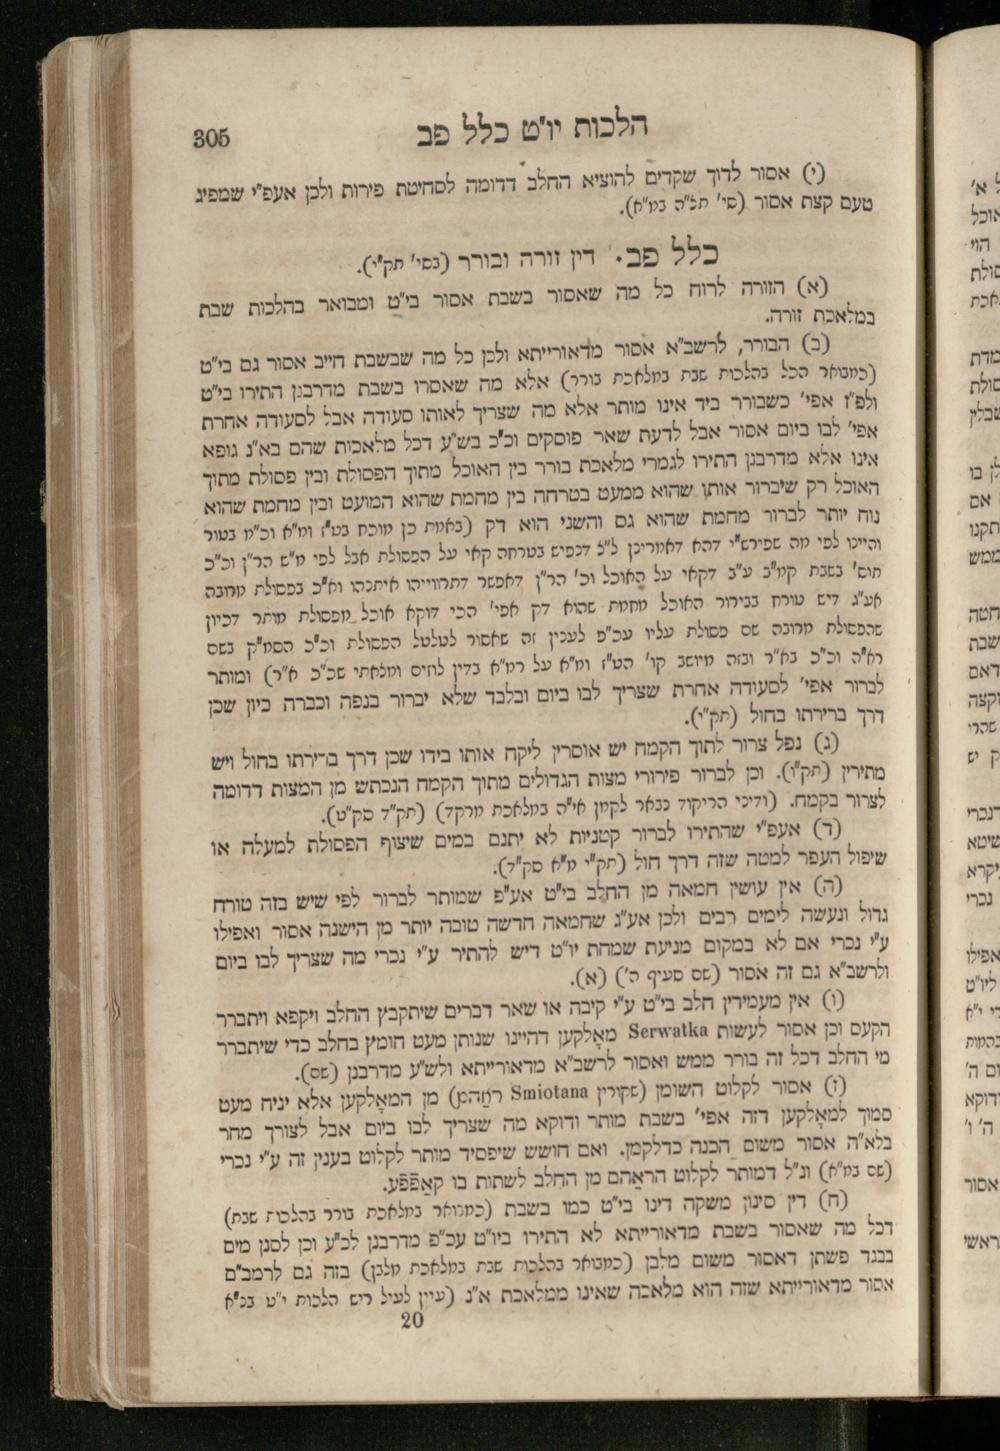 305
הלכות יו"ט כלל פב
(י) אסור לדוך שקדים להוציא החלב דדומה לסחיטת פירות ולכן אעפ"י שמפיג
טעם קצת אסור (סי' תל"ה במ"ח).
כלל פב. דין זורה ובורר (בסי' תק"י).
(א) הזורה לרוח כל מה שאסור בשבת אסור בי"ט ומבואר בהלכות שבת
במלאכת זורה.
(ב) הבורר, לרשב"א אסור מדאורייתא ולכן כל מה שבשבת חייב אסור גם בי"ט
(כמבואר הכל בהלכות שבת במלאכת בורר) אלא מה שאסרו בשבת מדרבנן התירו בי"ט
ולפ"ז אפי' כשבורר ביד אינו מותר אלא מה שצריך לאותו סעודה אבל לסעודה אחרת
אפי' לבו ביום אסור אבל לדעת שאר פוסקים וכ"כ בש"ע דכל מלאכות שהם בא"נ גופא
אינו אלא מדרבנן התירו לגמרי מלאכת בורר בין האוכל מתוך הפסולת ובין פסולת מתוך
האוכל רק שיברור אותו שהוא ממעט בטרחה בין מחמת שהוא המועט ובין מחמת שהוא
נוח יותר לברור מחמת שהוא גם והשני הוא דק (באמת כן מוכח בט"ז ומ"א וכ"מ בטור
והיינו לפי מה שפירש"י דהא דאמרינן ל"ל דנפיש בטרחה קאי על הפסולת אבל לפי מ"ש הר"ן וכ"כ
תוס' בשבת קמ"ב ע"ב דקאי על האוכל וכ' הר"ן דאפשר דתרווייהו איתנהו וא"כ בפסולת מרובה
אע"ג דיש טורח בבירור האוכל מחמת שהוא דק אפי' הכי דוקא אוכל מפסולת מותר דכיון
שהפסולת מרובה שם פסולת עליו עכ"פ לענין זה שאסור לטלטל הפסולת וכ"כ הסמ"ק בשם
רא"ה וכ"כ בא"ר ובזה מיושב קו' הט"ז ומ"א על רמ"א בדין לוזים ומלאתי שכ"כ א"ר) ומותר
לברור אפי' לסעודה אחרת שצריך לבו ביום ובלבד שלא יברור בנפה וכברה כיון שכן
דרך ברירתו בחול (תק"י).
(ג) נפל צרור לתוך הקמח יש אוסרין ליקח אותו בידו שכן דרך ברירתו בחול ויש
מתירין (תק"ו). וכן לברור פירורי מצות הגדולים מתוך הקמח הנכתש מן המצות דדומה
לצרור בקמח. (ודיני הריקוד נבאר לקמן אי"ה במלאכת מרקד) (תק"ד סק"ט).
(ד) אעפ"י שהתירו לברור קטניות לא יתנם במים שיצוף הפסולת למעלה או
שיפול העפר למטה שזה דרך חול (תק"י מ"א סק"ד).
(ה) אין עושין חמאה מן החלב בי"ט אע"פ שמותר לברור לפי שיש בזה טורח
גדול ונעשה לימים רבים ולכן אע"ג שחמאה חדשה טובה יותר מן הישנה אסור ואפילו
ע"י נכרי אם לא במקום מניעת שמחת יו"ט דיש להתיר ע"י נכרי מה שצריך לבו ביום
ולרשב"א גם זה אסור (שם סעיף ה') (א).
(ו) אין מעמידין חלב בי"ט ע"י קיבה או שאר דברים שיתקבץ החלב ויקפא ויתברר
הקעם וכן אסור לעשות Serwatka מאָלקען דהיינו שנותן מעט חומץ בחלב כדי שיתברר
מי החלב דכל זה בורר ממש ואסור לרשב"א מדאורייתא ולש"ע מדרבנן (שם).
(ז) אסור לקלוט השומן (שקורין Smiotana ראַהם) מן המאָלקען אלא יניח מעט
סמוך למאָלקען דזה אפי' בשבת מותר ודוקא מה שצריך לבו ביום אבל לצורך מחר
בלא"ה אסור משום הכנה כדלקמן. ואם חושש שיפסיד מותר לקלוט בענין זה ע"י נכרי
(שם במ"א) ונ"ל דמותר לקלוט הראַהם מן החלב לשתות בו קאַפֿפֿע.
(ח) דין סינון משקה דינו בי"ט כמו בשבת (כמבואר במלאכת בורר בהלכות שבת)
דכל מה שאסור בשבת מדאורייתא לא התירו ביו"ט עכ"פ מדרבנן לכ"ע וכן לסנן מים
בבגד פשתן דאסור משום מלבן (כמבואר בהלכות שבת במלאכת מלבן) בזה גם לרמב"ם
אסור מדאורייתא שזה הוא מלאכה שאינו ממלאכת א"נ (עיין לעיל ריש הלכות י"ט בכ"א
20